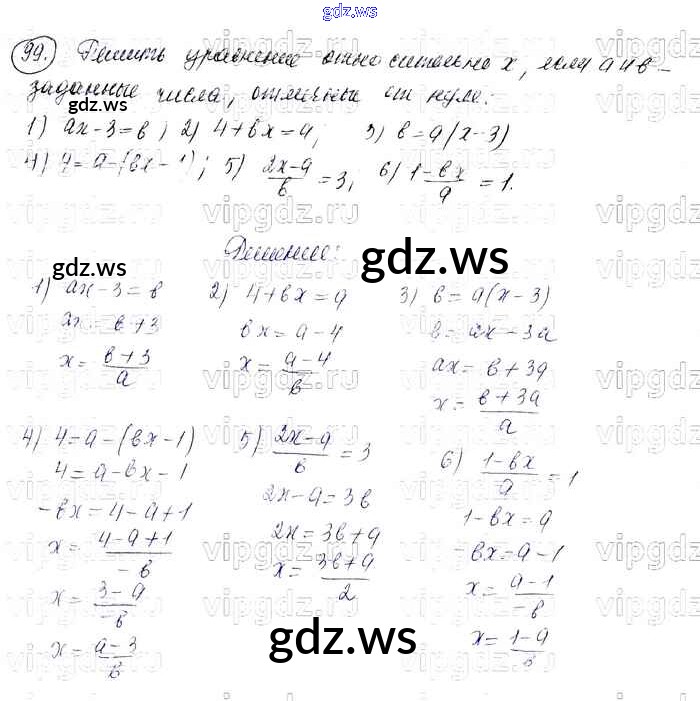 gdz.ws
99. Решить уравнение относительно x, если a и b –
заданные числа, отличные от нуля:
1) ax-3=b; 2) 4+bx=a; 3) b=a(x-3)
4) 4=a-(bx-1); 5) \frac{2x-a}{b}=3; 6) \frac{1-bx}{a}=1.
Решение:
gdz.ws
gdz.ws
1) ax-3=b
ax=b+3
x=\frac{b+3}{a}
2) 4+bx=a
bx=a-4
x=\frac{a-4}{b}
3) b=a(x-3)
b=ax-3a
ax=b+3a
x=\frac{b+3a}{a}
4) 4=a-(bx-1)
4=a-bx-1
-bx=4-a+1
x=\frac{4-a+1}{-b}
x=\frac{3-a}{-b}
x=\frac{a-3}{b}
5) \frac{2x-a}{b}=3
2x-a=3b
2x=3b+a
x=\frac{3b+a}{2}
6) \frac{1-bx}{a}=1
1-bx=a
-bx=a-1
x=\frac{a-1}{-b}
x=\frac{1-a}{b}
gdz.ws
gdz.ws
vipgdz.ru